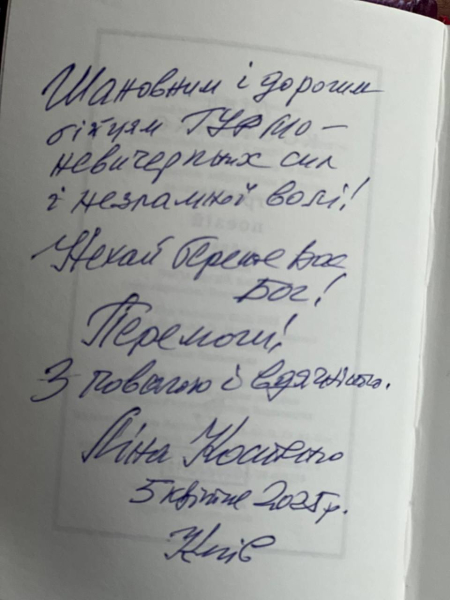 Шановним і дорогим
бійцям ГУР МО —
невичерпних сил
і незламної волі!
Нехай береже Вас
Бог!
Перемоги!
З повагою і вдячністю.
Ліна Костенко
5 квітня 2025 р.
Київ